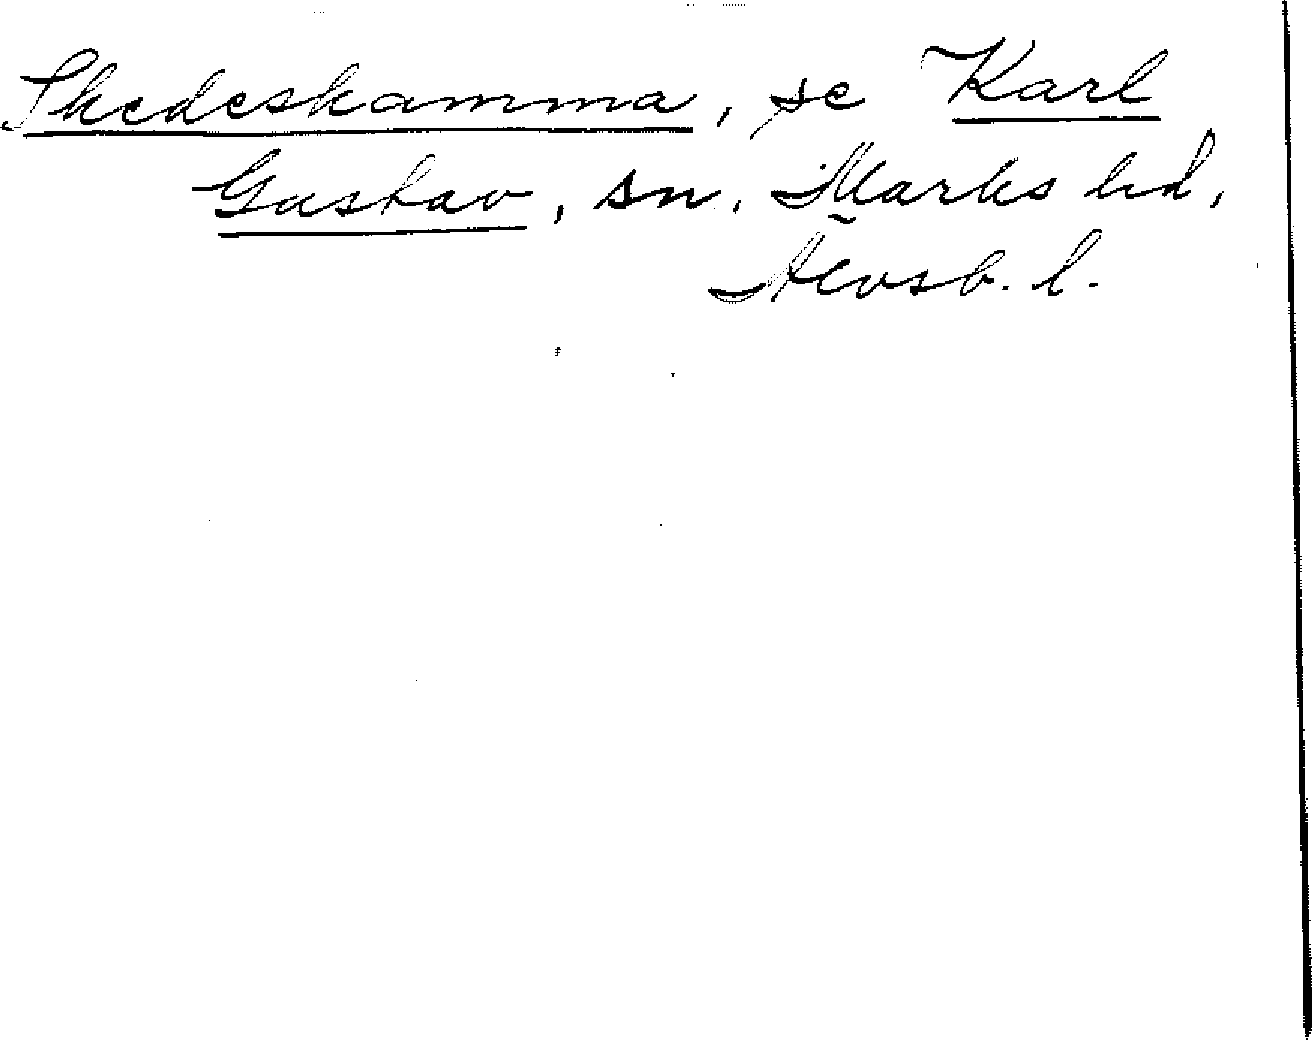 Skedeskamma, se Karl
Gustav, sn, Marks hd,
Älvsb. l.